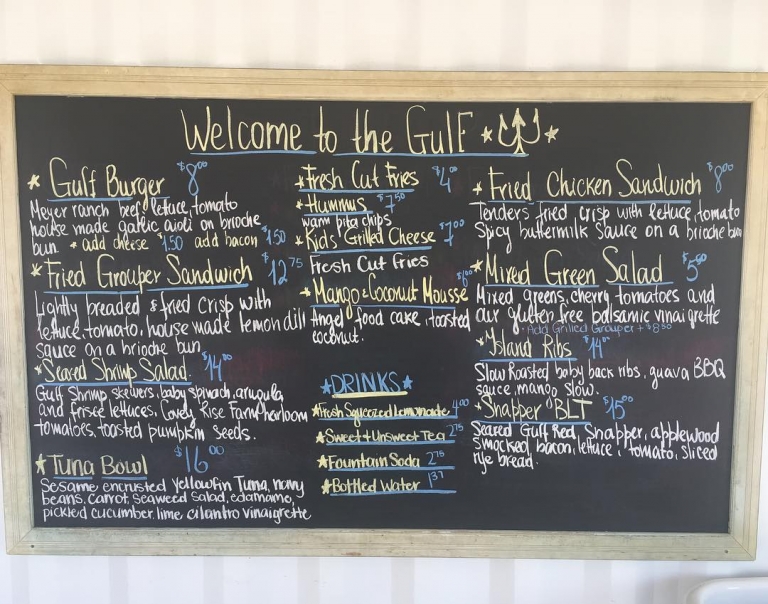 Welcome to the Gulf
Gulf Burger $8.00
Meyer ranch beef, lettuce, tomato
house made garlic aioli on brioche
bun * add cheese $1.50 add bacon $1.50
Fried Grouper Sandwich $12.75
Lightly breaded & fried crisp with
lettuce, tomato, house made lemon dill
sauce on a brioche bun
Seared Shrimp Salad $14.00
Gulf Shrimp skewers, baby spinach, arugula
and frisee lettuces, Covey Rise Farm heirloom
tomatoes, toasted pumpkin seeds.
Tuna Bowl $16.00
Sesame encrusted yellowfin Tuna, navy
beans, carrot, seaweed salad, edamame,
pickled cucumber, lime cilantro vinaigrette
Fresh Cut Fries $4.00
Hummus $7.50
warm pita chips
Kids Grilled Cheese $7.00
Fresh Cut Fries
Mango & Coconut Mousse
Angel food cake, toasted
coconut.
DRINKS
Fresh Squeezed Lemonade 4.00
Sweet + Unsweet Tea 2.75
Fountain Soda 2.75
Bottled Water 1.37
Fried Chicken Sandwich $8.00
Tenders fried crisp with lettuce, tomato
Spicy buttermilk sauce on a brioche bun
Mixed Green Salad
Mixed greens, cherry tomatoes and
our glutten free balsamic vinaigrette
Add Grilled Grouper + $8.50
Island Ribs $14.00
Slow Roasted baby back ribs, guava BBQ
sauce, mango slow.
Snapper "BLT" $15.00
Seared Gulf Red Snapper, applewood
smocked bacon, lettuce, tomato, sliced
rye bread.